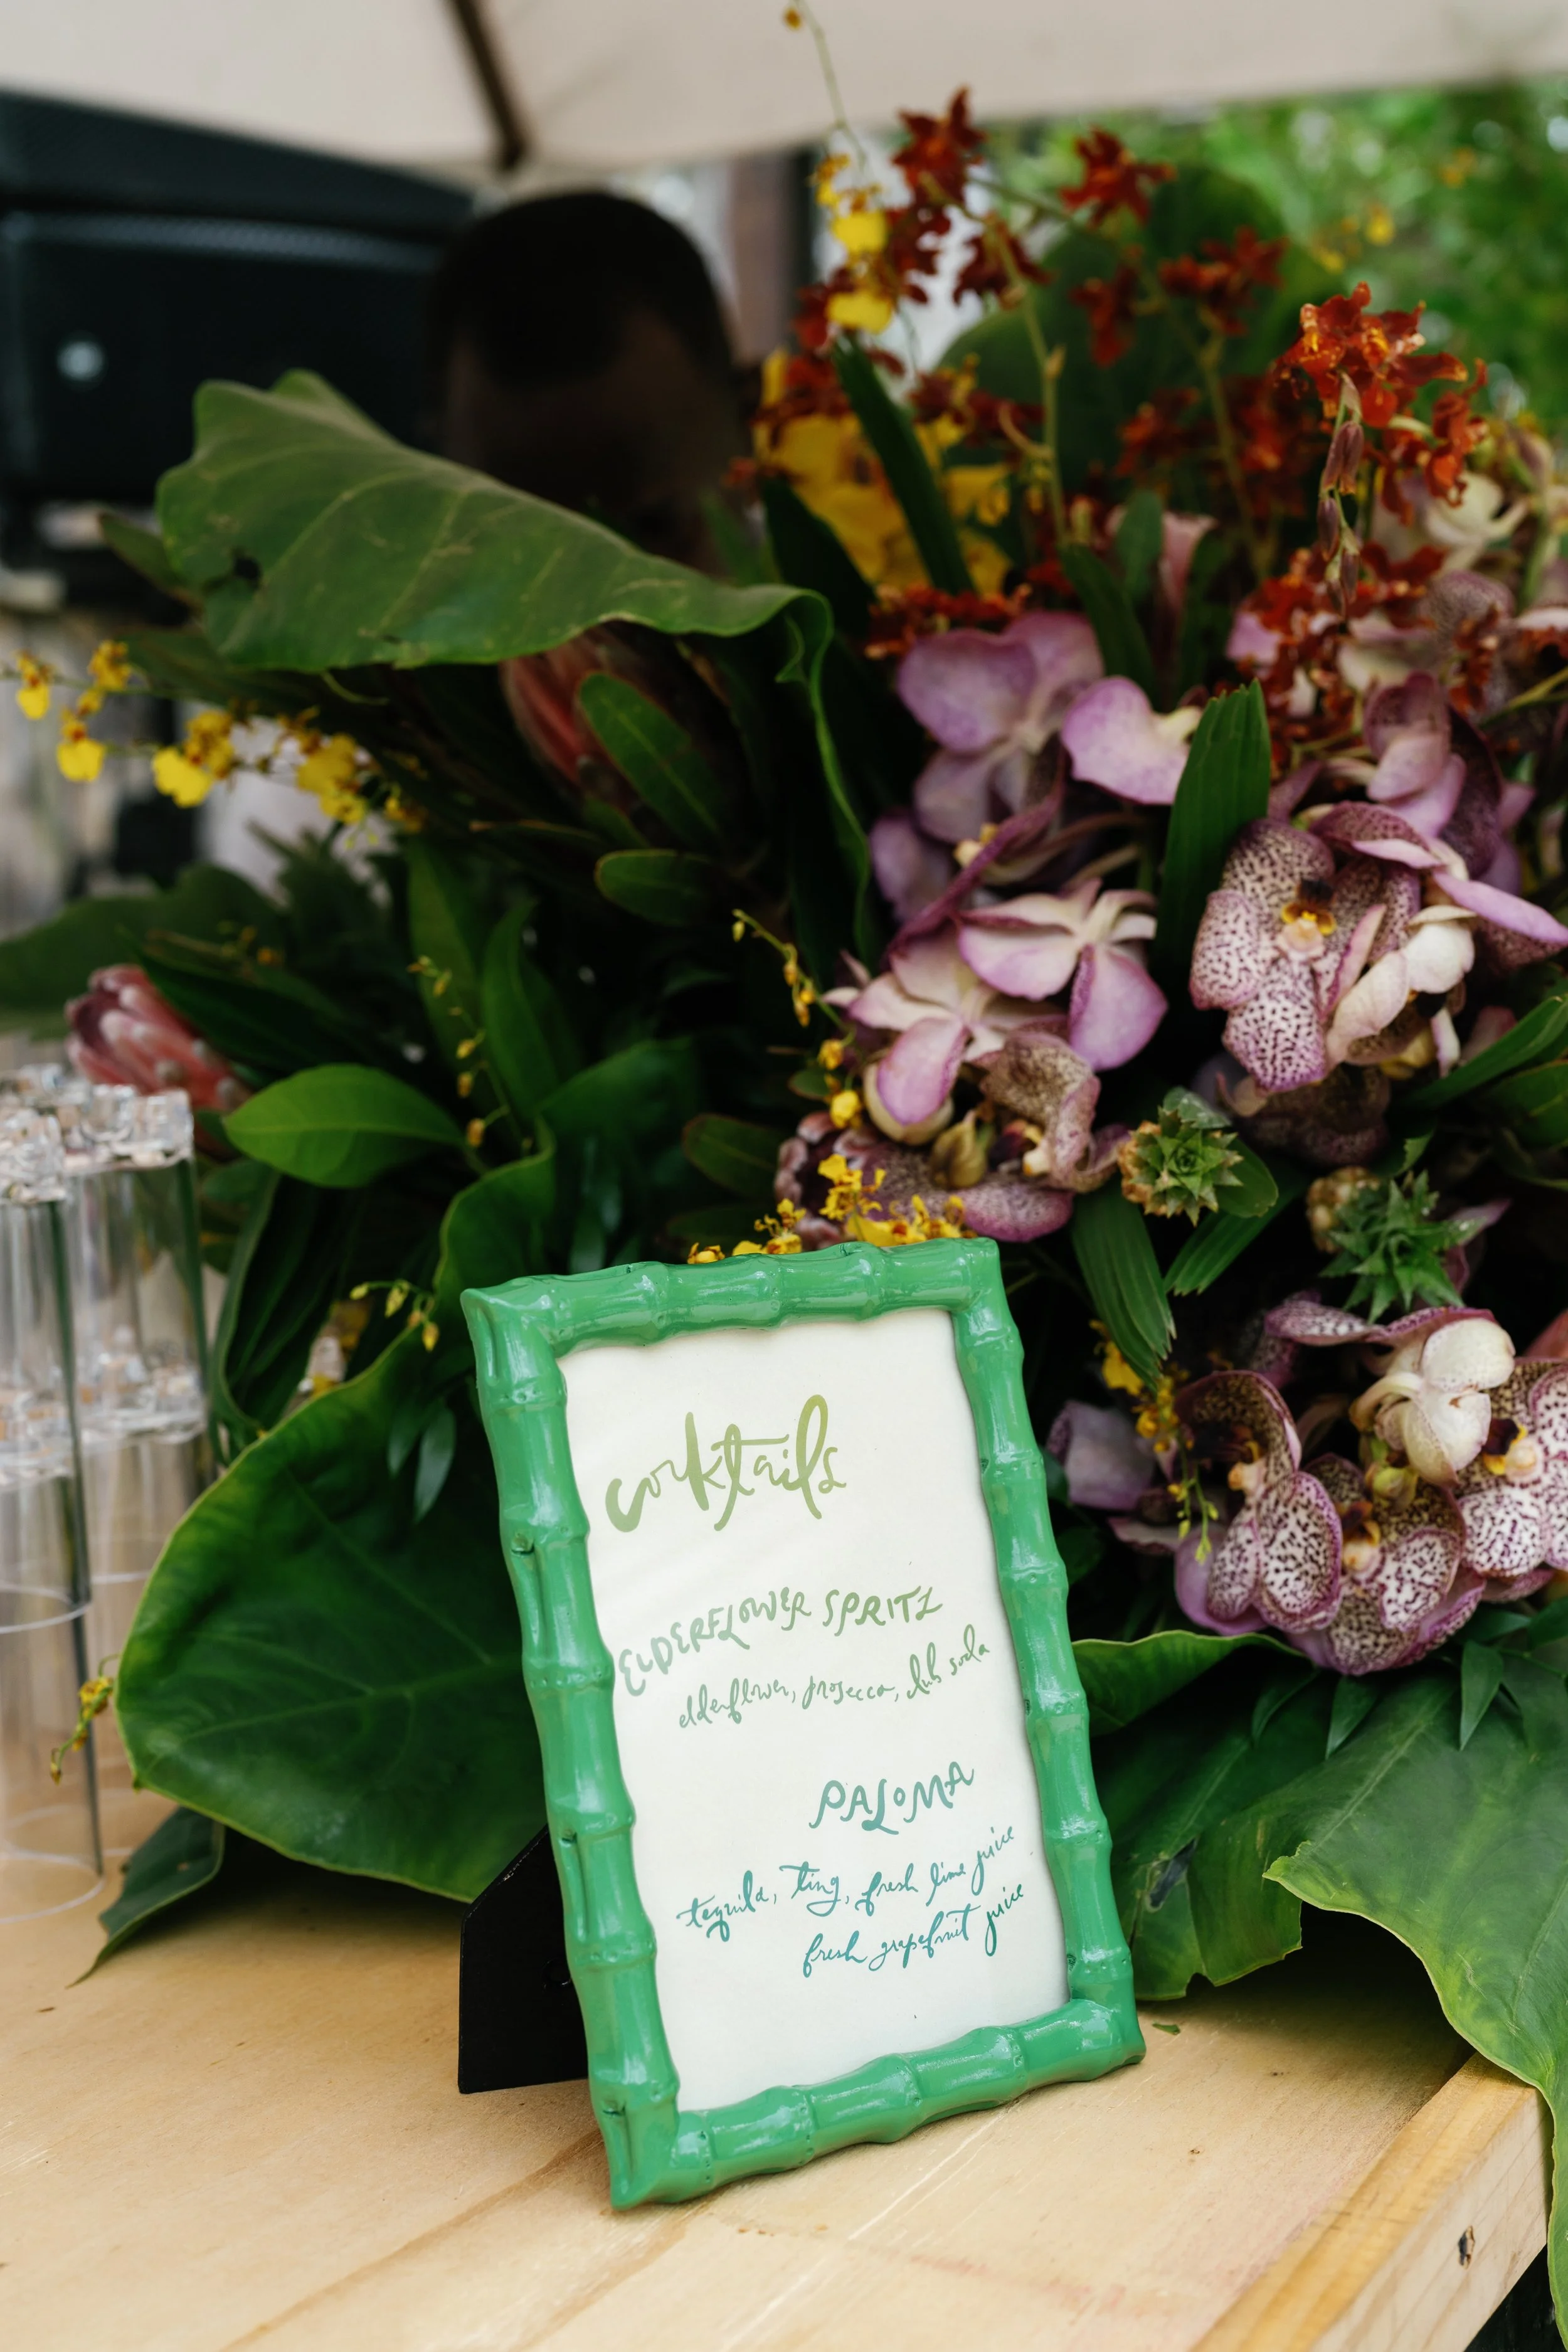 cocktails
ELDERFLOWER SPRITZ
elderflower, prosecco, club soda
PALOMA
tequila, Ting, fresh lime juice
fresh grapefruit juice